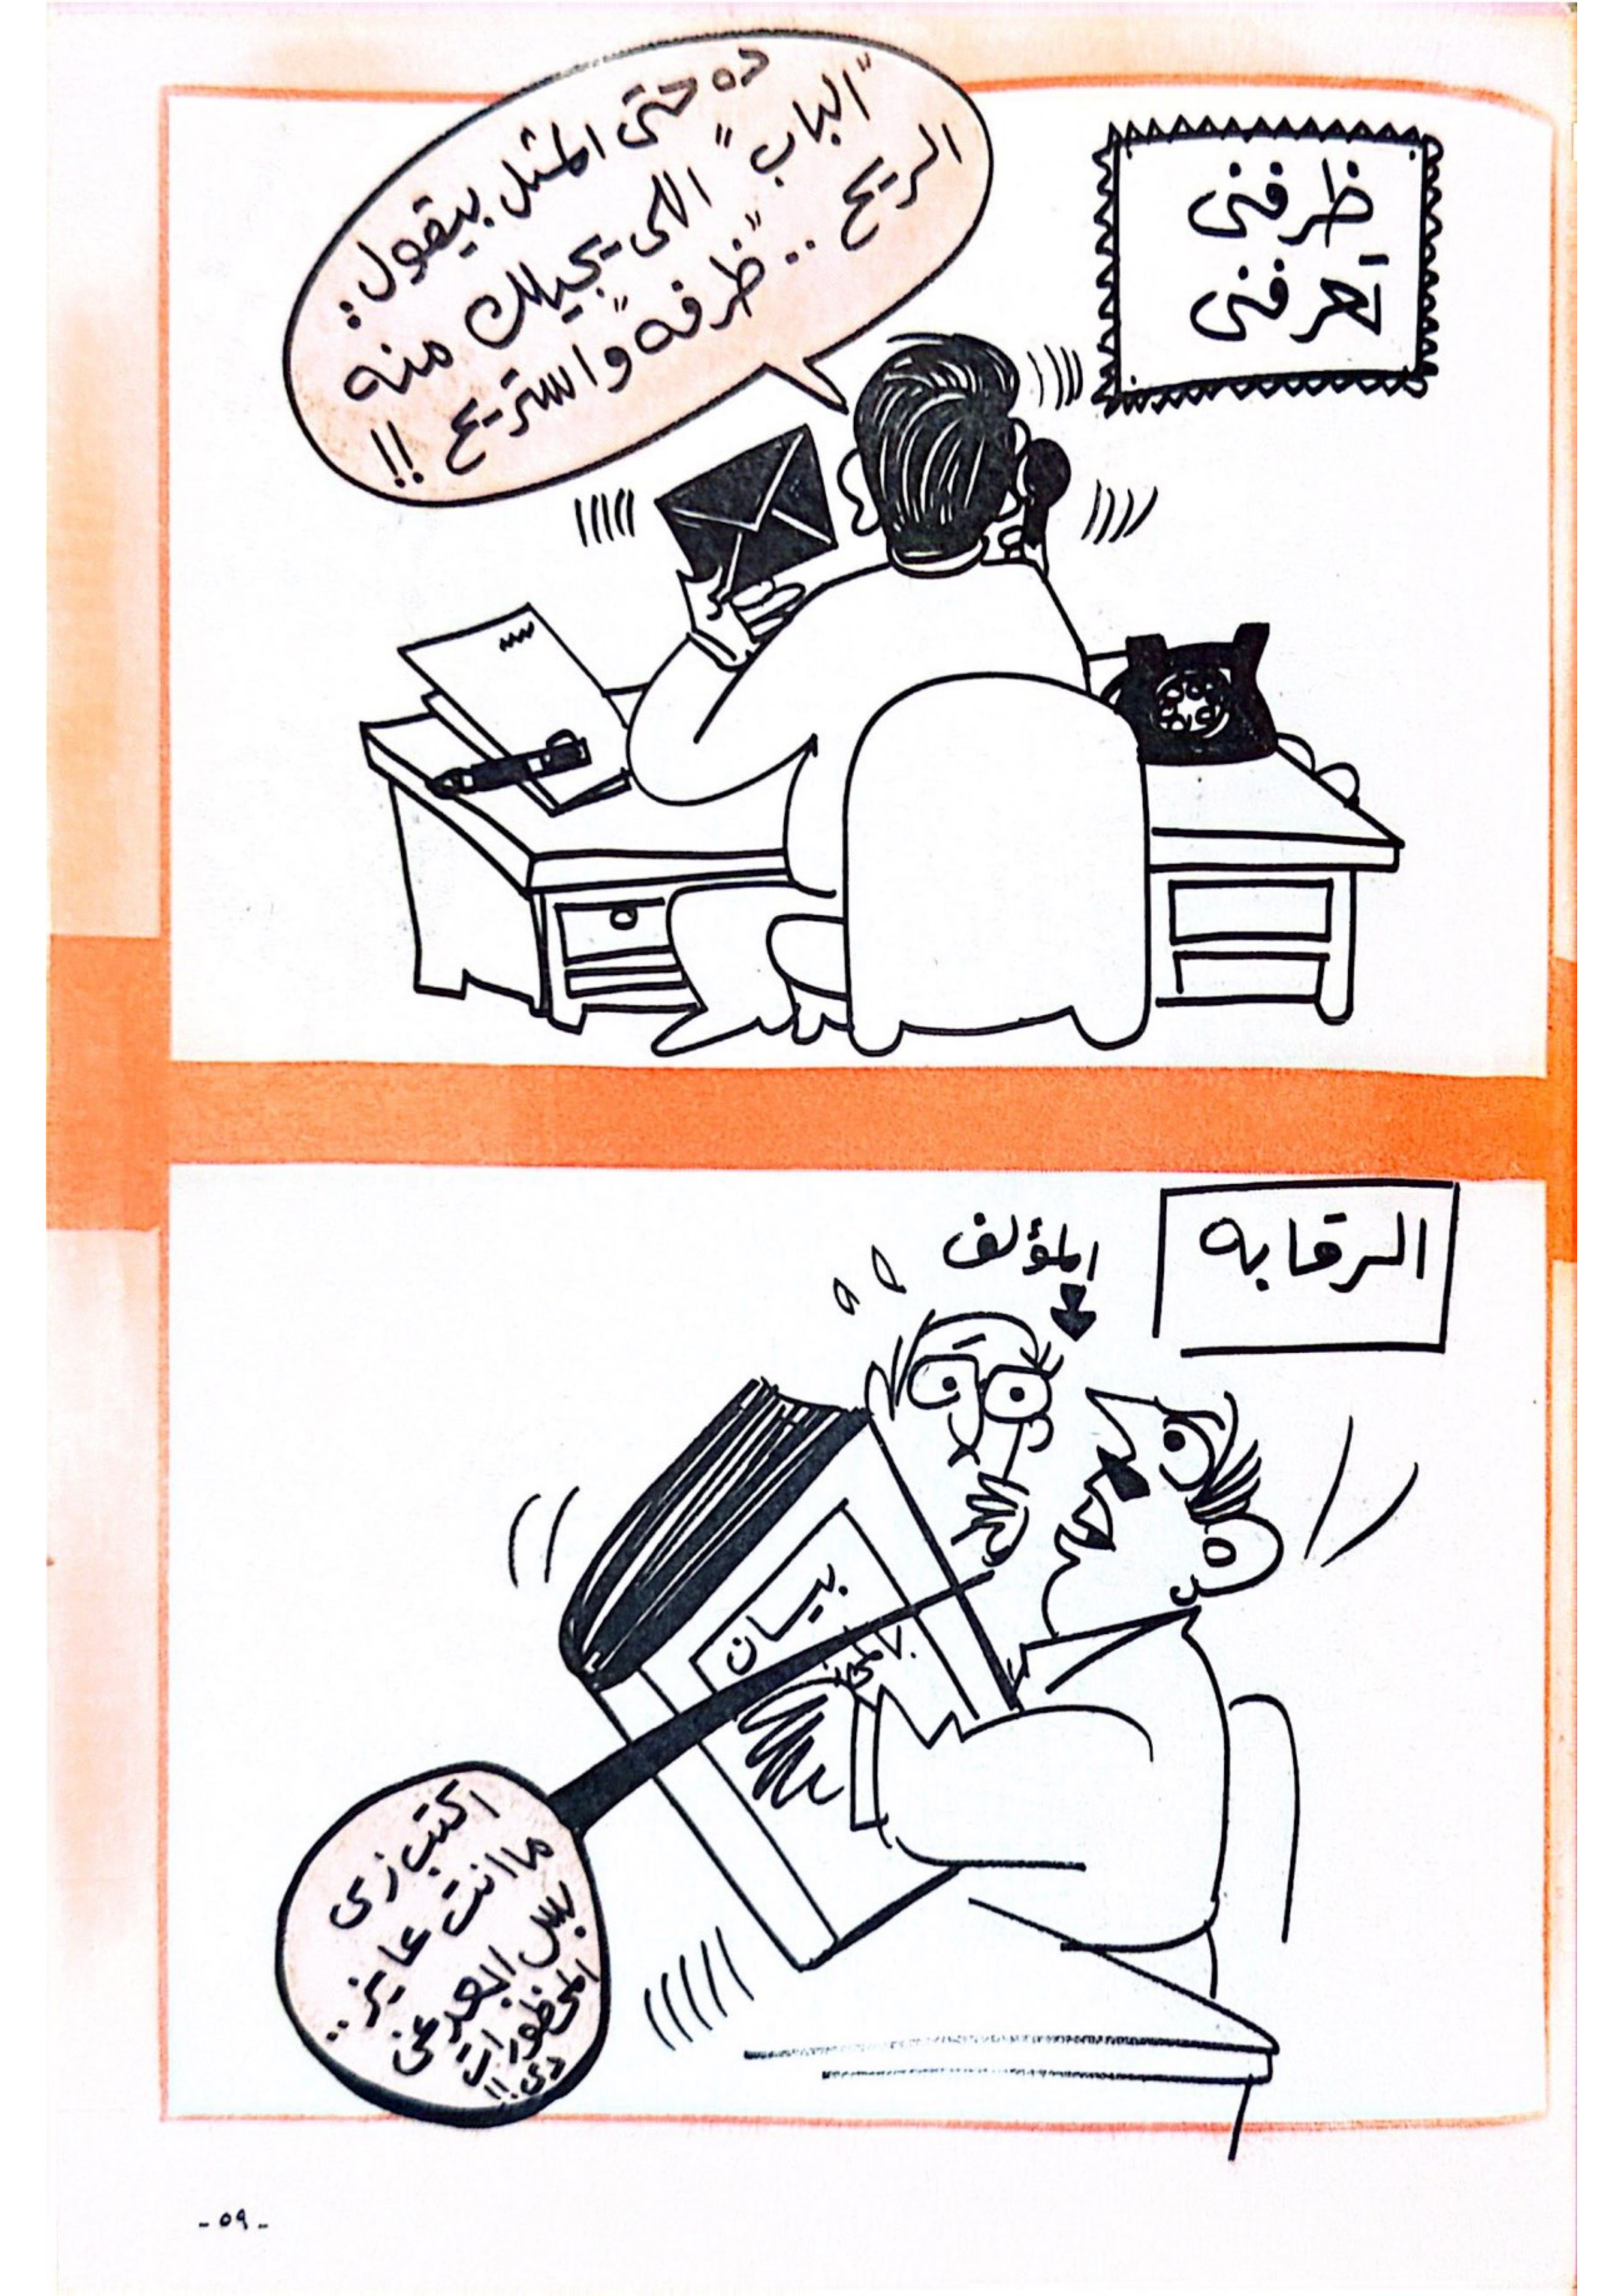 ظرفنى
تَعرفنى
ده حتى المثل بيقول:
"الباب" اللى يجيلك منه
الريح .. "ظرفه" واستريح !!
الرقابه
المؤلف
بيان
اكتب زى
ما انت عايز ..
بس ابعد عن
المحظورات
دى !!
- ٥٩ -